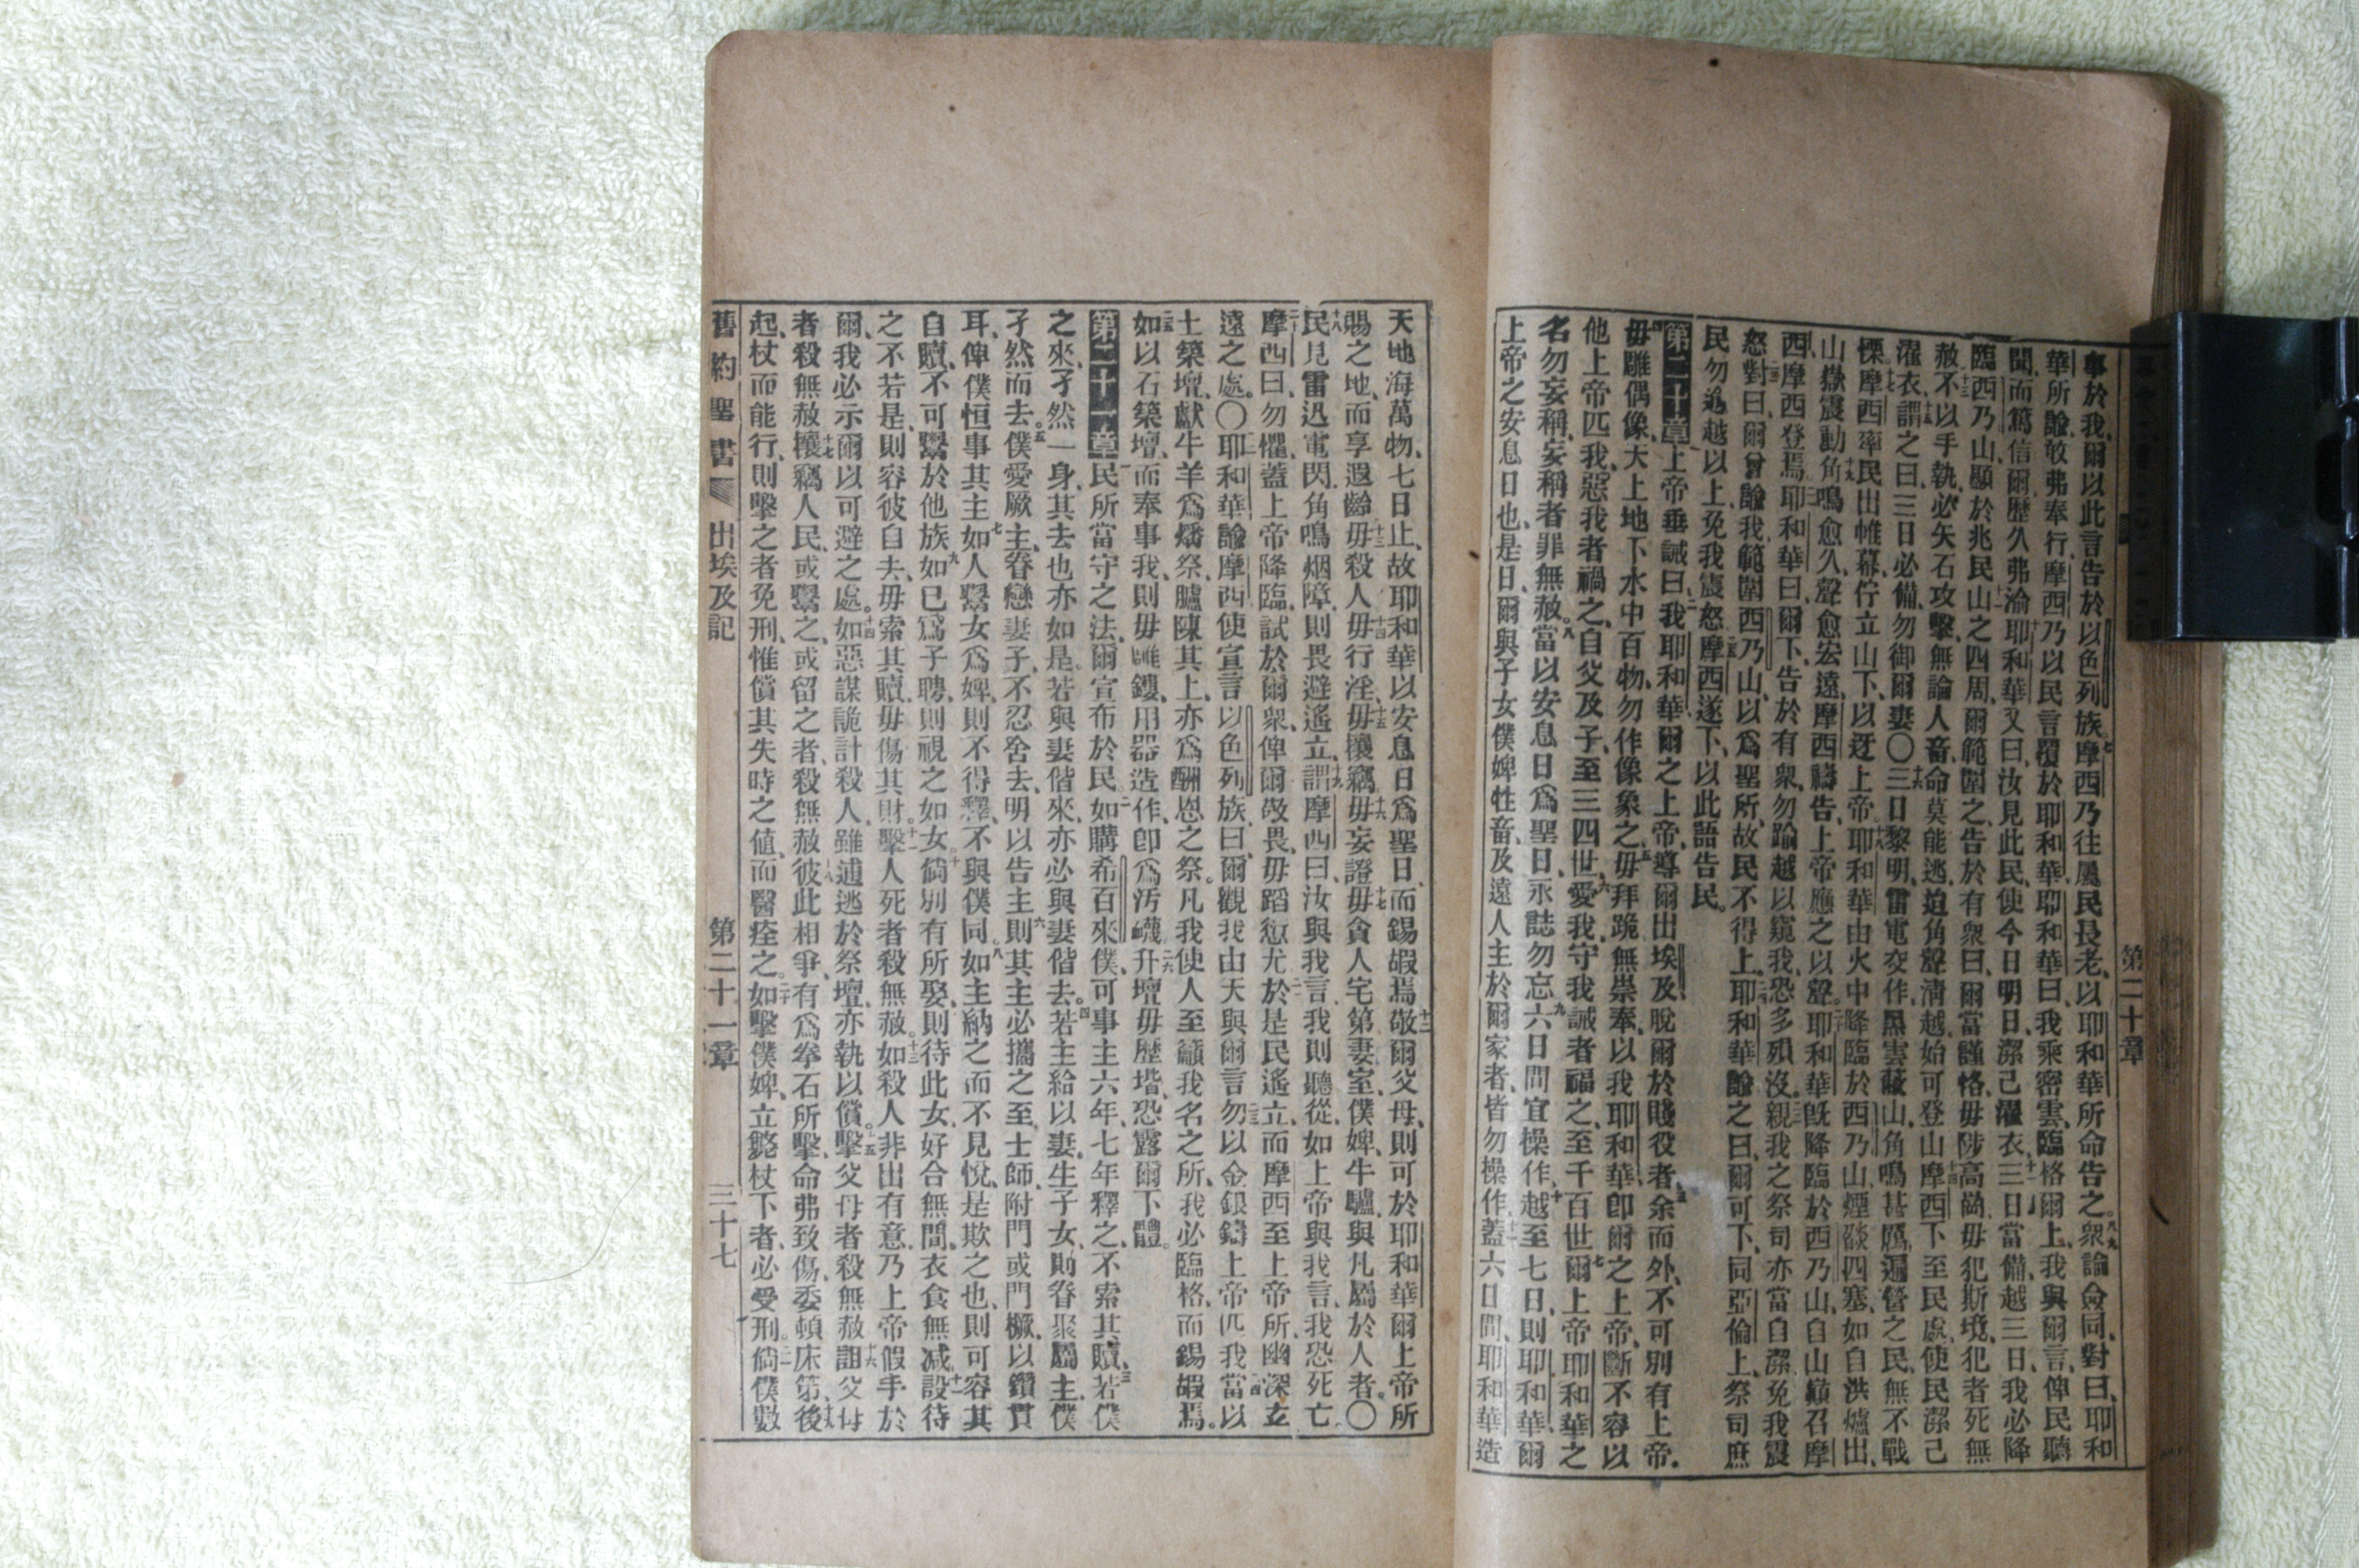 第二十章
事於我、爾以此言告於以色列族、七摩西乃往、屬民長老、以耶和華所命告之。八衆論僉同、對曰、耶和
華所諭、敢弗奉行、摩西乃以民言覆於耶和華、九耶和華曰、我乘密雲、臨格爾上、我與爾言、俾民聽
聞、而篤信爾、歷久弗渝、十耶和華又曰、汝見此民、使今日明日、潔己濯衣、十一三日當備、越三日、我必降
臨西乃山、顯於兆民、十二山之四周、爾範圍之、告於有衆曰、爾當謹恪、毋陟高崗、毋犯斯境、犯者死無
赦、十三不以手執、必矢石攻擊、無論人畜、命莫能逃、迨角聲清越、始可登山、十四摩西下至民處、使民潔己
濯衣、十五謂之曰、三日必備、勿御爾妻〇十六三日黎明、雷電交作、黑雲蔽山、角鳴甚厲、遍營之民、無不戰
慄、十七摩西率民出帷幕、佇立山下、以迓上帝、十八耶和華由火中降臨於西乃山、煙燄四塞、如自洪爐出、
山嶽震動、十九角鳴愈久、聲愈宏遠、摩西禱告、上帝應之以聲、二十耶和華旣降臨於西乃山、自山巔召摩
西、摩西登焉、二一耶和華曰、爾下、告於有衆、勿踰越以窺我、恐多殞沒、二二親我之祭司、亦當自潔、免我震
怒、二三對曰、爾曾諭我、範圍西乃山、以爲聖所、故民不得上、二四耶和華諭之曰、爾可下、同亞倫上、祭司庶
民、勿過越以上、免我震怒、二五摩西遂下、以此語告民。
第二十章上帝垂誡曰、二我耶和華、爾之上帝、導爾出埃及、脫爾於賤役者、三余而外、不可別有上帝、
四毋雕偶像、天上地下水中百物、勿作像象之、五毋拜跪、無崇奉、以我耶和華、卽爾之上帝、斷不容以
他上帝匹我、惡我者禍之、自父及子、至三四世、六愛我守我誡者福之、至千百世、七爾上帝耶和華之
名勿妄稱、妄稱者罪無赦、八當以安息日爲聖日、永誌勿忘、九六日間宜操作、十越至七日、則耶和華爾
上帝之安息日也、是日、爾與子女僕婢牲畜、及遠人主於爾家者、皆勿操作、十一蓋六日間、耶和華造
天地海萬物、七日止、故耶和華以安息日爲聖日、而錫嘏焉、十二敬爾父母、則可於耶和華爾上帝所
賜之地、而享遐齡、十三毋殺人、十四毋行淫、十五毋攘竊、十六毋妄證、十七毋貪人宅第妻室、僕婢、牛驢、與凡屬於人者。〇
十八民見雷迅電閃、角鳴烟障、則畏避遙立、十九謂摩西曰、汝與我言、我則聽從、如上帝與我言、我恐死亡、
二十摩西曰、勿懼、蓋上帝降臨、試於爾衆、俾爾敬畏、毋蹈愆尤、二一於是民遙立、而摩西至上帝所、幽深玄
遠之處。〇二二耶和華諭摩西、使宣言以色列族曰、爾觀我由天與爾言、二三勿以金銀鑄上帝匹我、二四當以
土築壇、獻牛羊爲燔祭、臚陳其上、亦爲酬恩之祭。凡我使人至籲我名之所、我必臨格、而錫嘏焉。
二五如以石築壇、而奉事我、則毋雕鏤、用器造作、卽爲汚衊、二六升壇毋歷堦、恐露爾下體。
第二十一章一民所當守之法、爾宣布於民、二如購希百來僕、可事主六年、七年釋之、不索其贖、三若僕
之來、孑然一身、其去也亦如是、若與妻偕來、亦必與妻偕去。四若主給以妻、生子女、則眷聚屬主、僕
孑然而去。五僕愛厥主、眷戀妻子、不忍舍去、明以告主、六則其主必攜之至士師、附門或門橛、以鑽貫
耳、俾僕恒事其主、七如人鬻女爲婢、則不得釋、不與僕同。八如主納之而不見悅、是欺之也、則可容其
自贖、不可鬻於他族、九如已爲子聘、則視之如女、十倘別有所娶、則待此女、好合無間、衣食無减、十一設待
之不若是、則容彼自去、毋索其贖、毋傷其財。十二擊人死者、殺無赦、十三如殺人非出有意、乃上帝假手於
爾、我必示爾以可避之處。十四如惡謀詭計殺人、雖逋逃於祭壇、亦執以償。十五擊父母者殺無赦、十六詛父母
者、殺無赦、十七攘竊人民、或鬻之、或留之者、殺無赦、十八彼此相爭、有爲拳石所擊、命弗致傷、委頓床笫、十九後
起、杖而能行、則擊之者免刑、惟償其失時之値、而醫痊之。二十如擊僕婢、立斃杖下者、必受刑。二一倘僕數
舊約聖書 出埃及記 第二十一章 三十七